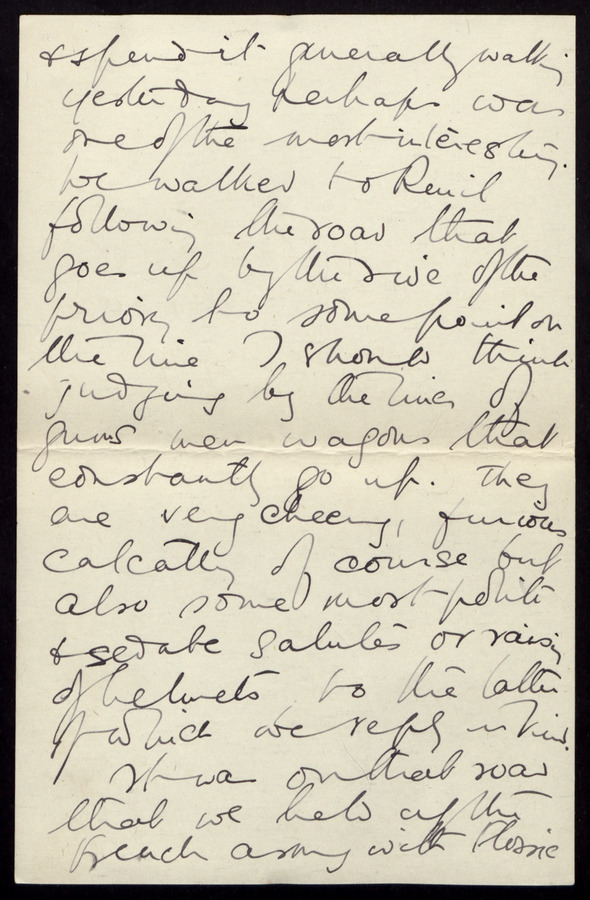 & spend it generally walking
yesterday perhaps was
one of the most interesting.
We walked to Reuil
following the road that
goes up by the side of the
priory to some point on
the line I should think
judging by the lines of
guns men wagons that
constantly go up. They
are very cheery, furious
of course but
also some most polite
& sedate salutes or raising
of helmets to the latter
of which we reply in kind.
It was on that road
that we held up the
French army with Flossie